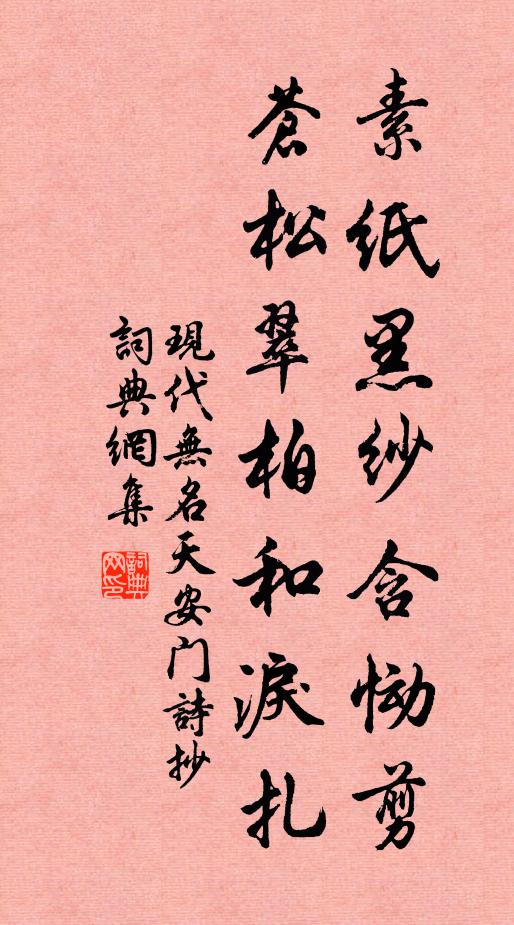 素紙黑紗含恸剪
蒼松翠柏和淚扎
現代無名天安门詩抄
詞典網集
詞典网印